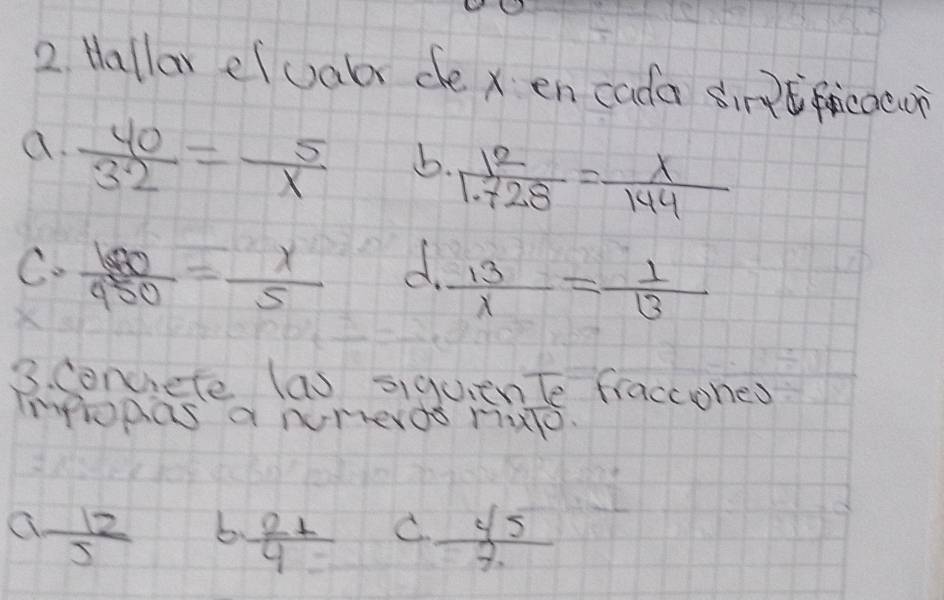 2. Hallar el valor de x en cada simplificacion
a. 40/32 = 5/x b. 12/1.728 = x/144
c. 180/450 = x/5 d. 13/x = 1/13
3. Concrete las siguiente fracciones
impropias a numeros mixto.
a. 12/5 b. 21/4 c. 45/7.